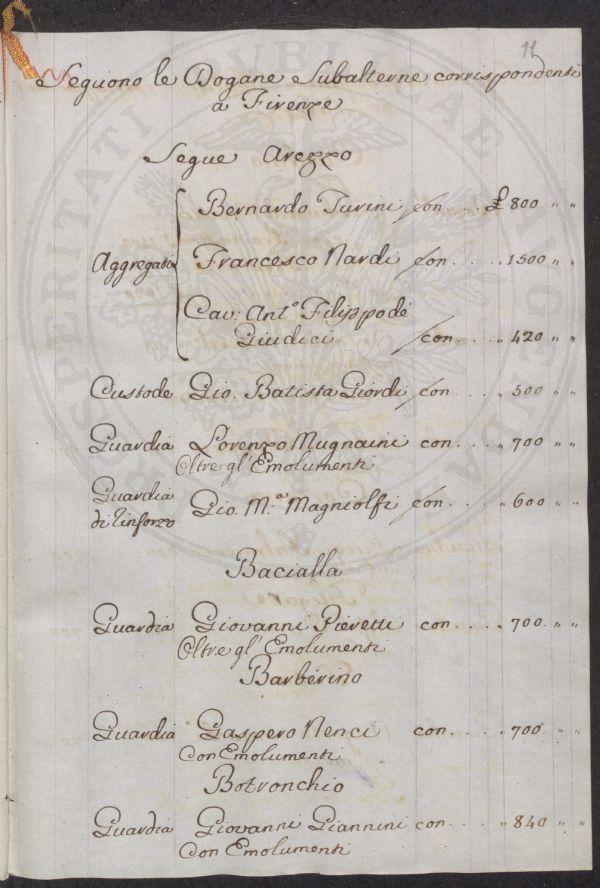 11
Seguono le Dogane Subalterne corrispondenti
a Firenze
Segue Arezzo
Bernardo Turini con .... £ 800 " "
Aggregati Francesco Nardi con .... 1500 " "
Cav: Ant.º Filippo de
Giudici con .... " 420 " "
Custode Gio. Batista Giordi con .... " 500 " "
Guardia Lorenzo Mugnaini con .... " 700 " "
Oltre gl'Emolumenti
Guardia
di rinforzo Gio. M.ª Magniolfi con .... " 600 " "
Bacialla
Guardia Giovanni Pieretti con .... " 700 " "
Oltre gl'Emolumenti
Barberino
Guardia Gaspero Nenci con .... " 700 " "
Con Emolumenti
Botronchio
Guardia Giovanni Giannini con .... " 840 " "
Con Emolumenti